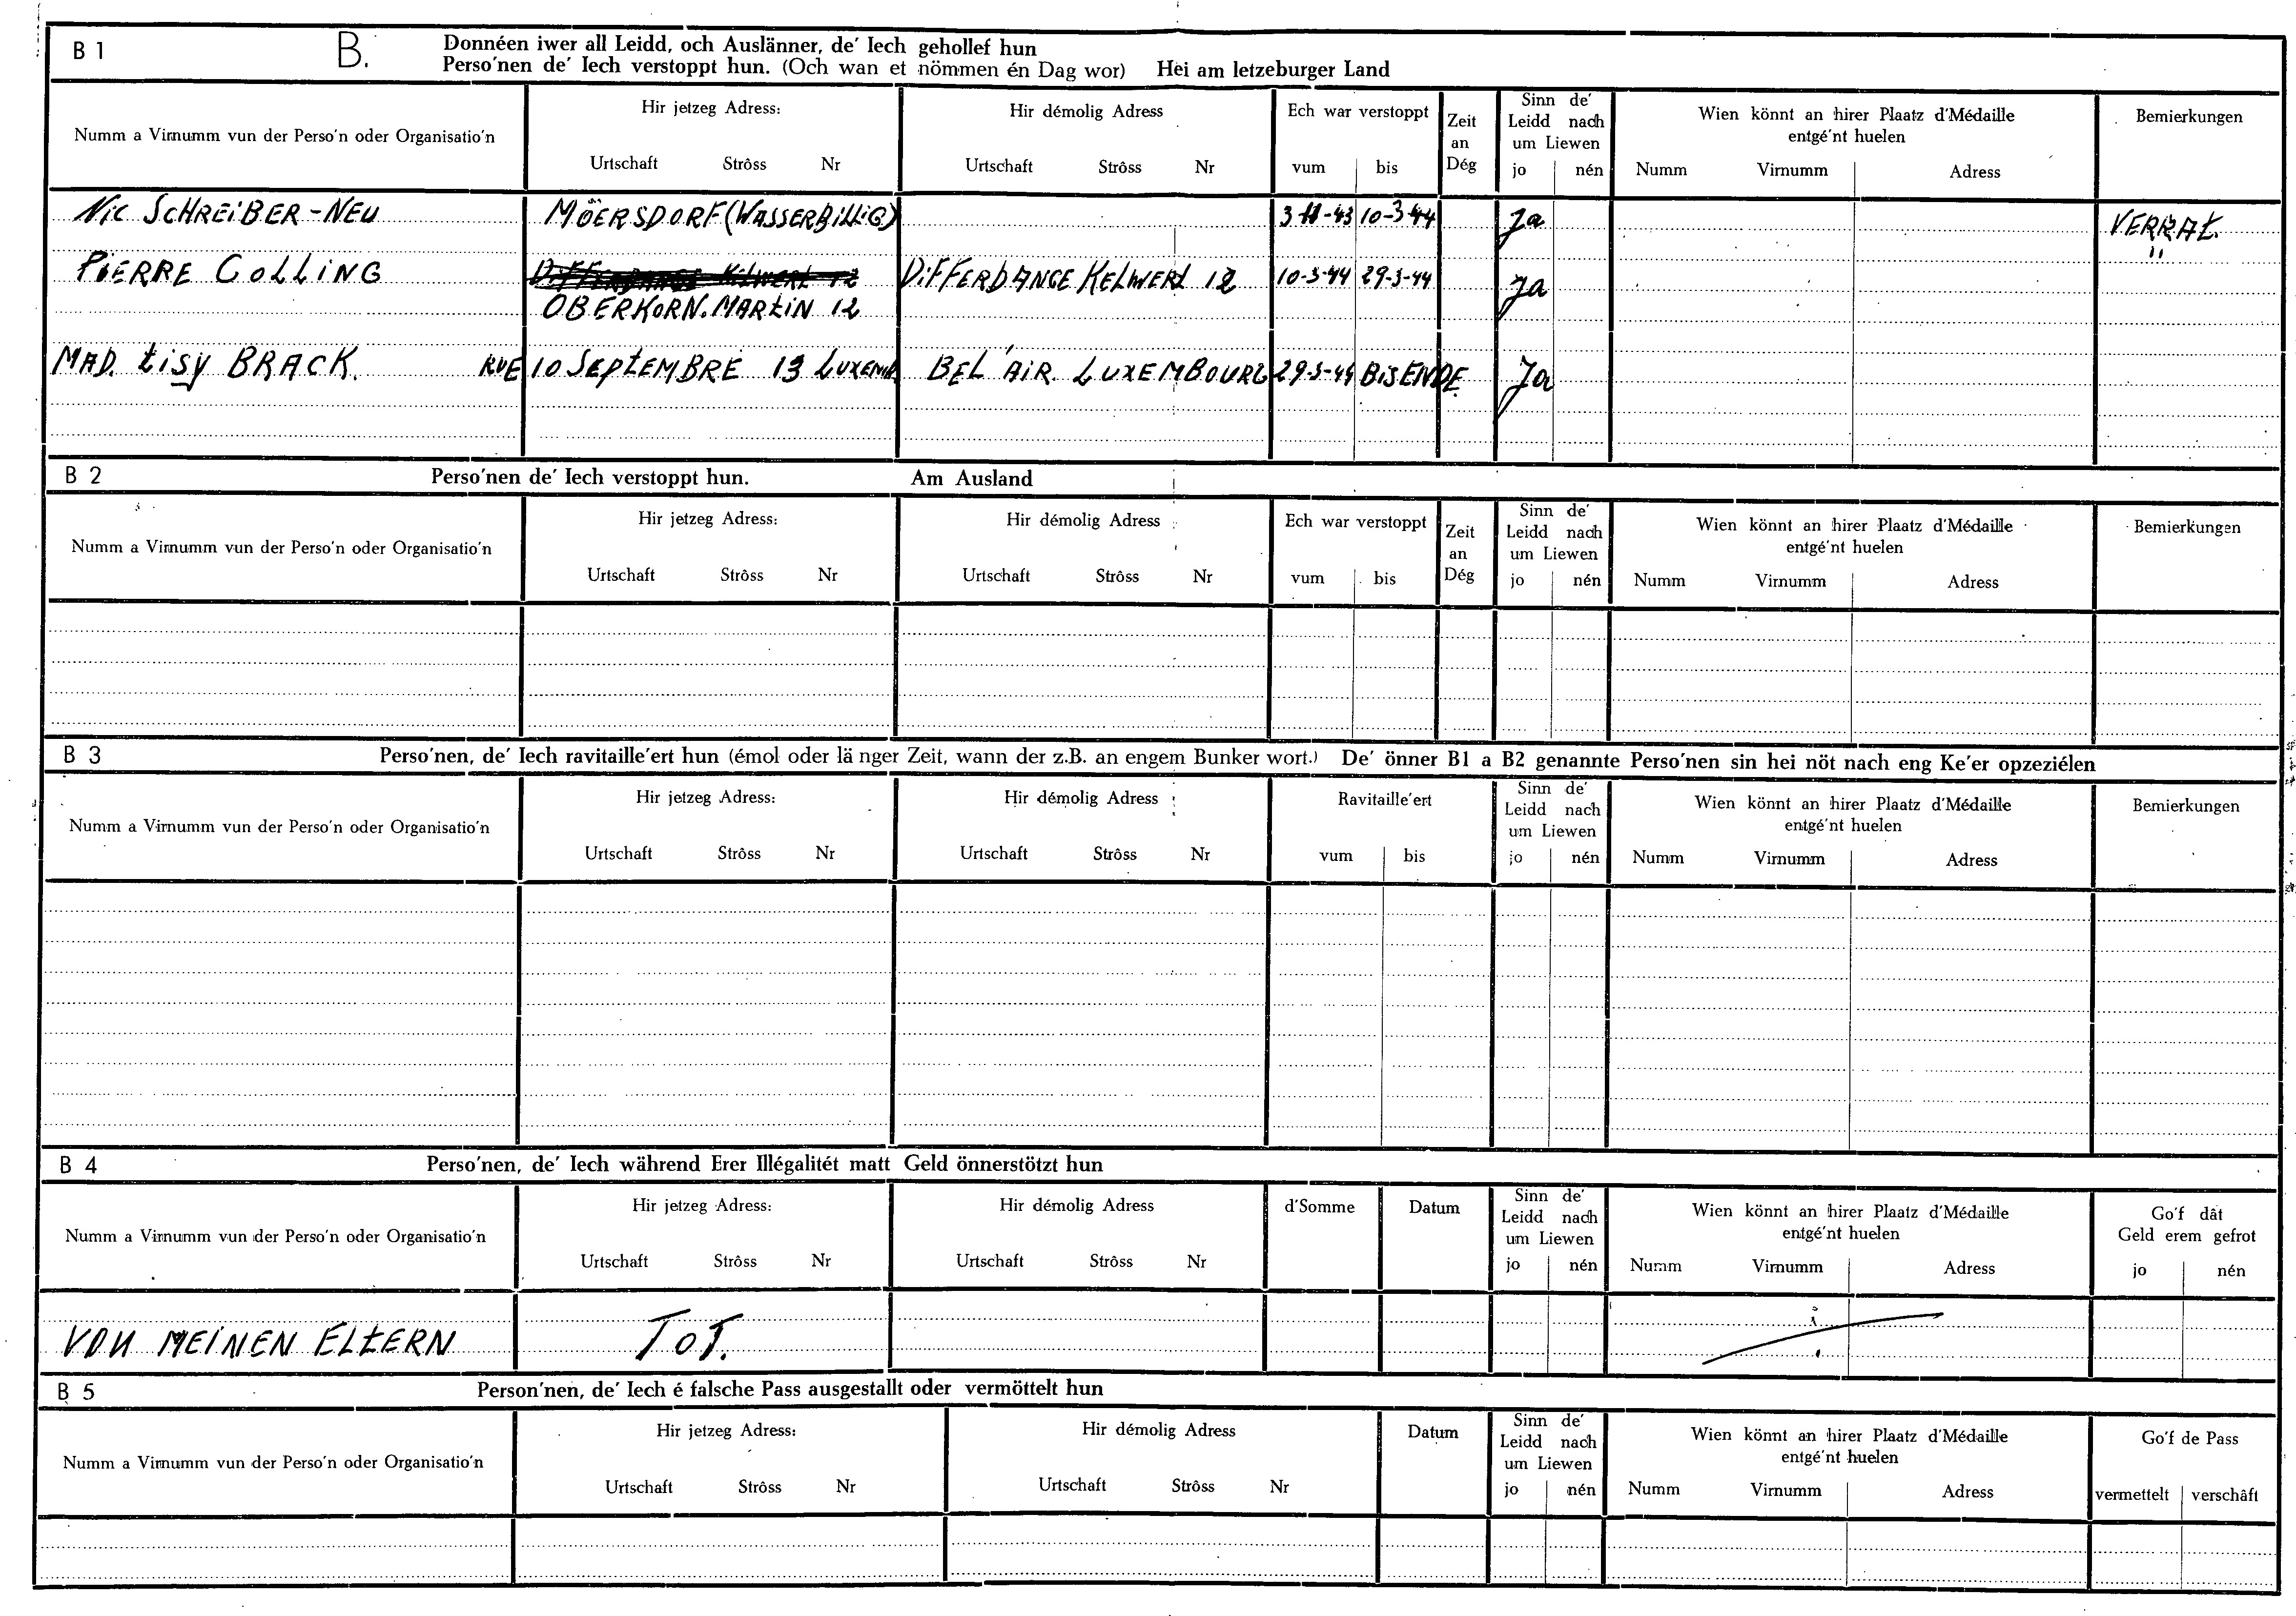 B 1 B. Donnéen iwer all Leidd, och Auslänner, de' Iech gehollef hun
Perso'nen de' Iech verstoppt hun. (Och wan et nömmen én Dag wor) Hei am letzeburger Land
Numm a Virnumm vun der Perso'n oder Organisatio'n
Hir jetzeg Adress:
Urtschaft Strôss Nr
Hir démolig Adress
Urtschaft Strôss Nr
Ech war verstoppt
vum bis
Zeit
an
Dég
Sinn de'
Leidd nach
um Liewen
jo nén
Wien könnt an hirer Plaatz d'Médaille
entgé'nt huelen
Numm Virnumm Adress
Bemierkungen
Nic SCHREiBER-NEU MÖERSDORF (WASSERBiLLiG) 3-11-43 10-3-44 Ja VERRAt.
PiERRE COLLiNG DiFFERDANGE KELWERt 12 10-3-44 29-3-44 Ja "
OBERKORN. MARtiN 12
MAD. tisy BRACK. RUE 10 SEPtEMBRE 13 LUXEMB BEL AiR LUXEMBOURG 29-3-44 BiS ENDE. Ja
B 2 Perso'nen de' Iech verstoppt hun. Am Ausland
Numm a Virnumm vun der Perso'n oder Organisatio'n
Hir jetzeg Adress:
Urtschaft Strôss Nr
Hir démolig Adress
Urtschaft Strôss Nr
Ech war verstoppt
vum bis
Zeit
an
Dég
Sinn de'
Leidd nach
um Liewen
jo nén
Wien könnt an hirer Plaatz d'Médaille
entgé'nt huelen
Numm Virnumm Adress
Bemierkungen
B 3 Perso'nen, de' Iech ravitaille'ert hun (émol oder länger Zeit, wann der z.B. an engem Bunker wort.) De' önner B1 a B2 genannte Perso'nen sin hei nöt nach eng Ke'er opzeziélen
Numm a Virnumm vun der Perso'n oder Organisatio'n
Hir jetzeg Adress:
Urtschaft Strôss Nr
Hir démolig Adress
Urtschaft Strôss Nr
Ravitaille'ert
vum bis
Sinn de'
Leidd nach
um Liewen
jo nén
Wien könnt an hirer Plaatz d'Médaille
entgé'nt huelen
Numm Virnumm Adress
Bemierkungen
B 4 Perso'nen, de' Iech während Erer Illégalitét matt Geld önnerstötzt hun
Numm a Virnumm vun der Perso'n oder Organisatio'n
Hir jetzeg Adress:
Urtschaft Strôss Nr
Hir démolig Adress
Urtschaft Strôss Nr
d'Somme Datum
Sinn de'
Leidd nach
um Liewen
jo nén
Wien könnt an hirer Plaatz d'Médaille
entgé'nt huelen
Numm Virnumm Adress
Go'f dât
Geld erem gefrot
jo nén
VON MEiNEN ELtERN TOT.
B 5 Person'nen, de' Iech é falsche Pass ausgestallt oder vermöttelt hun
Numm a Virnumm vun der Perso'n oder Organisatio'n
Hir jetzeg Adress:
Urtschaft Strôss Nr
Hir démolig Adress
Urtschaft Strôss Nr
Datum
Sinn de'
Leidd nach
um Liewen
jo nén
Wien könnt an hirer Plaatz d'Médaille
entgé'nt huelen
Numm Virnumm Adress
Go'f de Pass
vermettelt verschâft